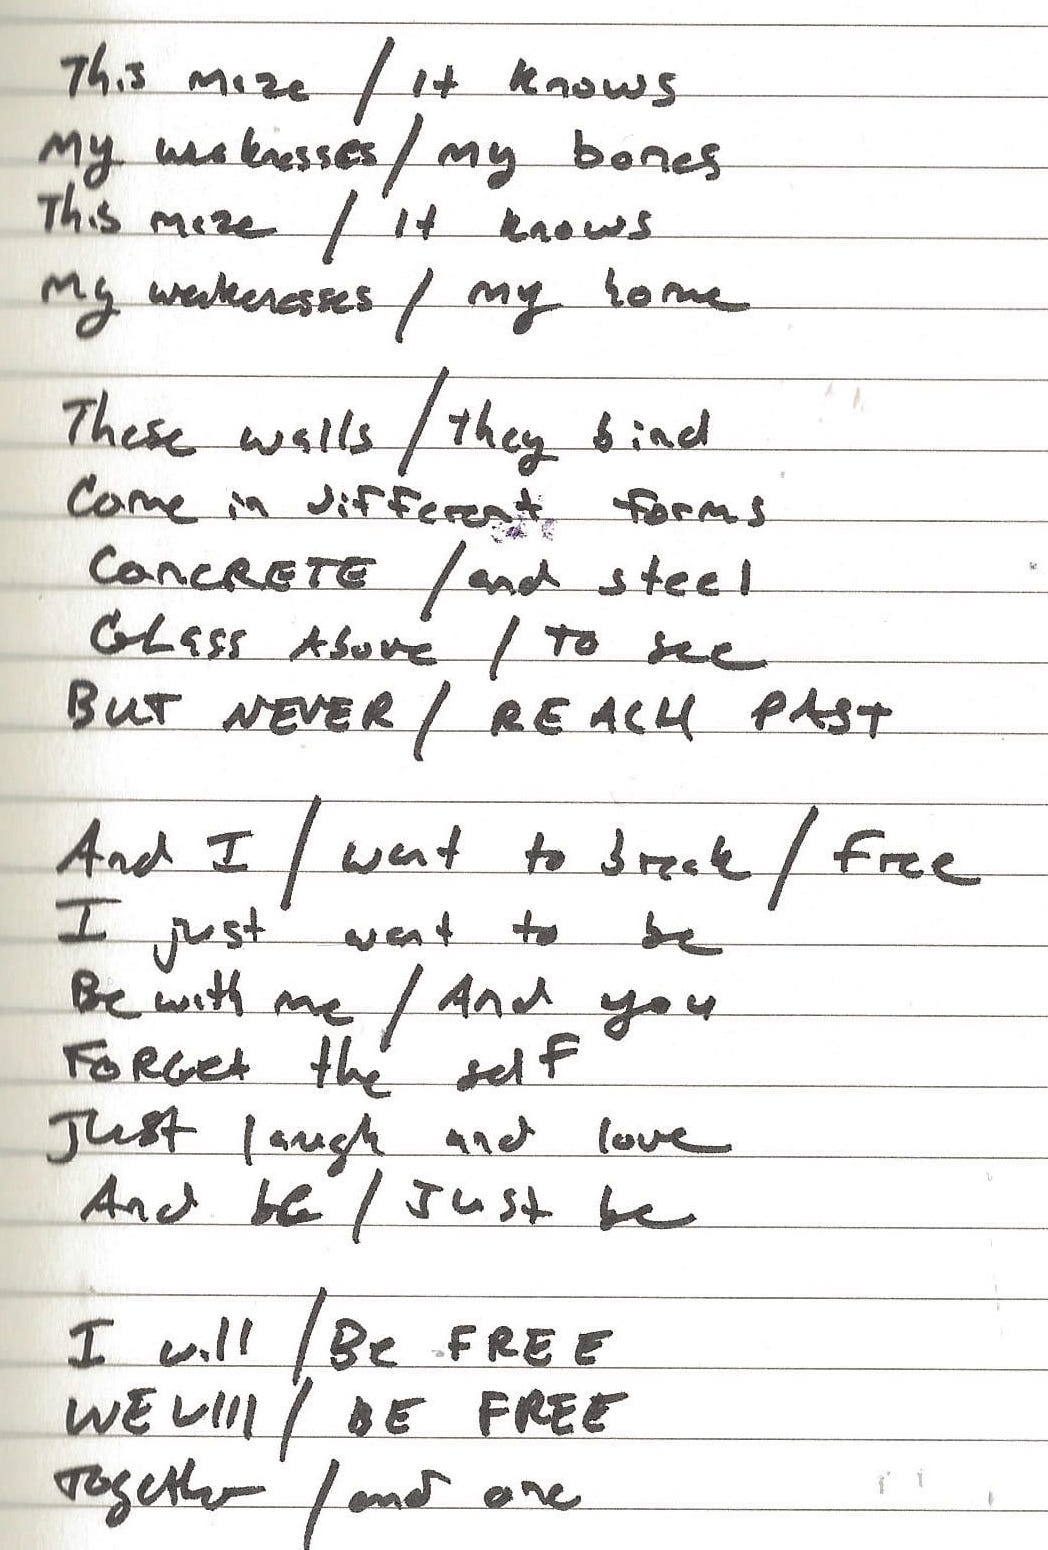 This maze / It knows
My weaknesses / my bones
This maze / It knows
My weakenesses / my home
These walls / they bind
Come in different forms
CONCRETE / and steel
GLASS Above / To see
BUT NEVER / REACH PAST
And I / want to break / free
I just want to be
Be with me / And you
FORGet the self
Just laugh and love
And be / Just be
I will / Be FREE
WE WIll / BE FREE
Together / and one